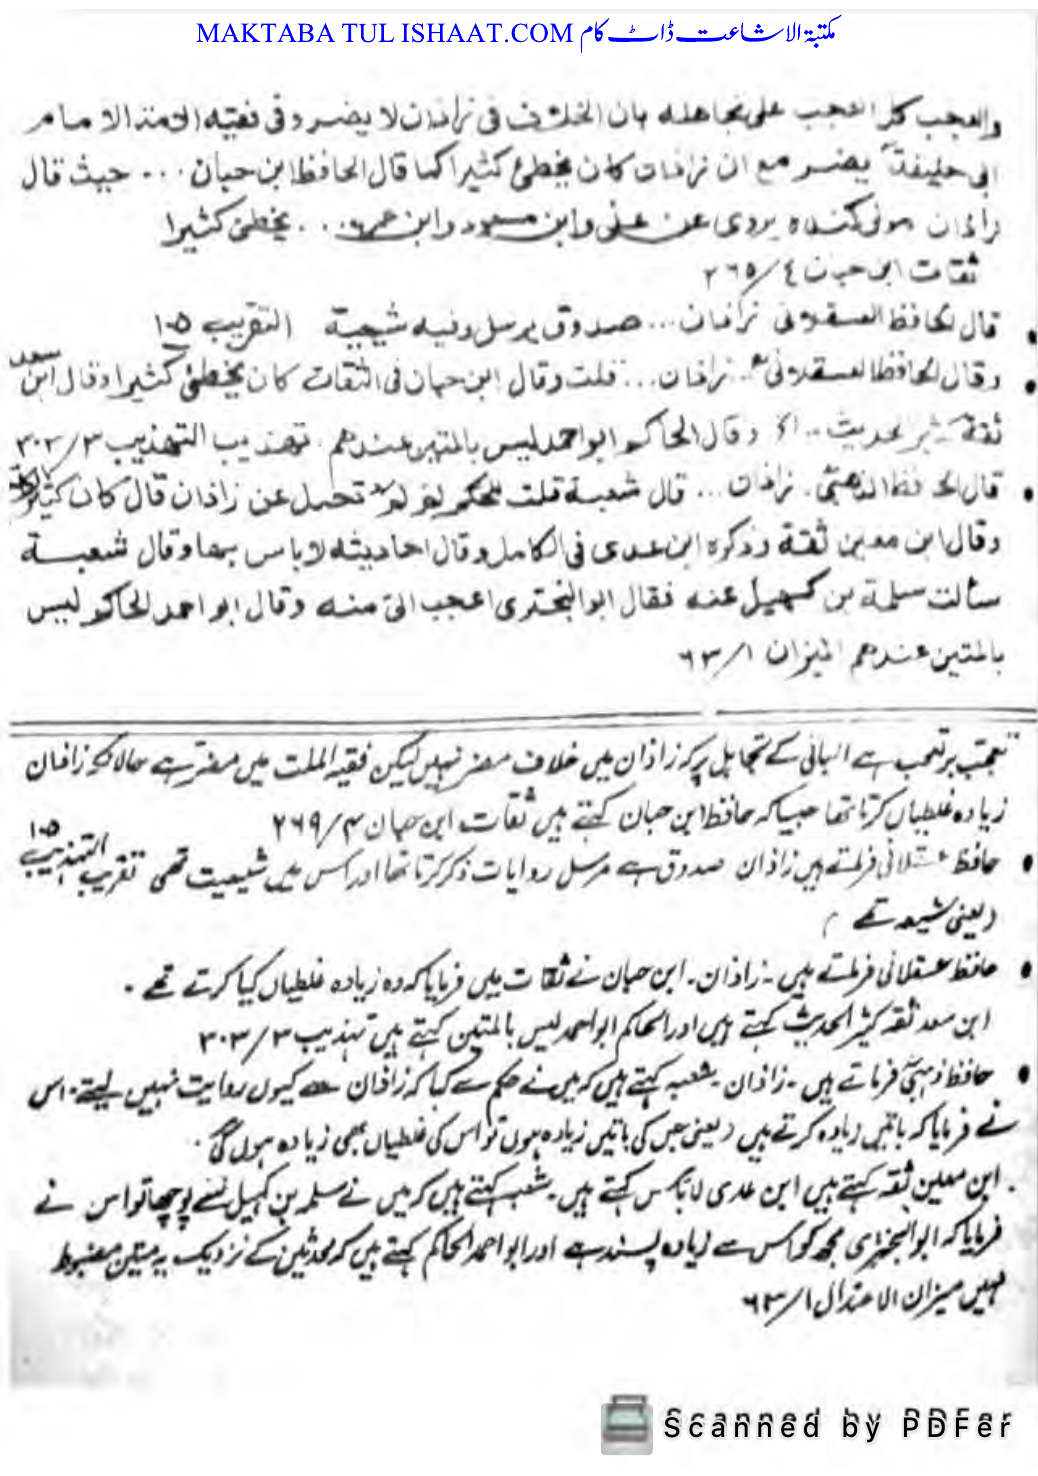 MAKTABA TUL ISHAAT.COM مکتبۃ الاشاعت ڈاٹ کام
والعجب كل العجب على تجاهله بان الخلاف فى زاذان لا يضر وفى فقيه الامة الامام
ابى حنيفة يضر مع ان زاذان كان يخطئ كثيرا كما قال الحافظ ابن حبان ... حيث قال
زاذان مولى كندة يروى عن على وابن مسعود وابن عمر ... يخطئ كثيرا
ثقات ابن حبان ٤/٢٦٥
قال الحافظ العسقلانى زاذان ... صدوق يرسل وفيه شيعية التقريب ١٠٥
وقال الحافظ العسقلانى زاذان ... قلت وقال ابن حبان فى الثقات كان يخطئ كثيرا وقال ابن سعد
ثقة كثير الحديث .. وقال الحاكم ابو احمد ليس بالمتين عندهم تهذيب التهذيب ٣/٣٠٢
قال الحافظ الذهبى زاذان ... قال شعبة قلت للحكم لم لم تحمل عن زاذان قال كان كثير الكلام
وقال ابن معين ثقة وذكره ابن عدى فى الكامل وقال احاديثه لا باس بها وقال شعبة
سألت سلمة بن كهيل عنه فقال ابو البخترى اعجب الىّ منه وقال ابو احمد الحاكم ليس
بالمتين عندهم الميزان ١/٦٣
تعجب بر تعجب ہے البانی کے تجاہل پر کہ زاذان میں خلاف مضر نہیں لیکن فقیہ الملت میں مضر ہے حالانکہ زاذان
زیادہ غلطیاں کرتا تھا جیسا کہ حافظ ابن حبان کہتے ہیں ثقات ابن حبان ۴/۲۶۹
حافظ عسقلانی فرماتے ہیں زاذان صدوق ہے مرسل روایات ذکر کرتا تھا اور اس میں شیعیت تھی تقریب التہذیب ۱۰۵
(یعنی شیعہ تھے)
حافظ عسقلانی فرماتے ہیں ۔ زاذان ۔ ابن حبان نے ثقات میں فرمایا کہ وہ زیادہ غلطیاں کیا کرتے تھے ۔
ابن سعد ثقہ کثیر الحدیث کہتے ہیں اور الحاکم ابو احمد لیس بالمتین کہتے ہیں تہذیب ۳/۳۰۳
حافظ ذہبیؒ فرماتے ہیں ۔ زاذان ۔ شعبہ کہتے ہیں کہ میں نے حکم سے کہا کہ زاذان سے کیوں روایت نہیں لیتے ۔ اس
نے فرمایا کہ باتیں زیادہ کرتے ہیں (یعنی جس کی باتیں زیادہ ہوں تو اس کی غلطیاں بھی زیادہ ہوں گی ۔
ابن معین ثقہ کہتے ہیں ابن عدی لا بأس کہتے ہیں ۔ شعبہ کہتے ہیں کہ میں نے سلمہ بن کہیل سے پوچھا تو اس نے
فرمایا کہ ابو البختری مجھ کو اس سے زیادہ پسند ہے اور ابو احمد الحاکم کہتے ہیں کہ محدثین کے نزدیک یہ متین مضبوط
نہیں میزان الاعتدال ۱/۶۳
Scanned by PDFer